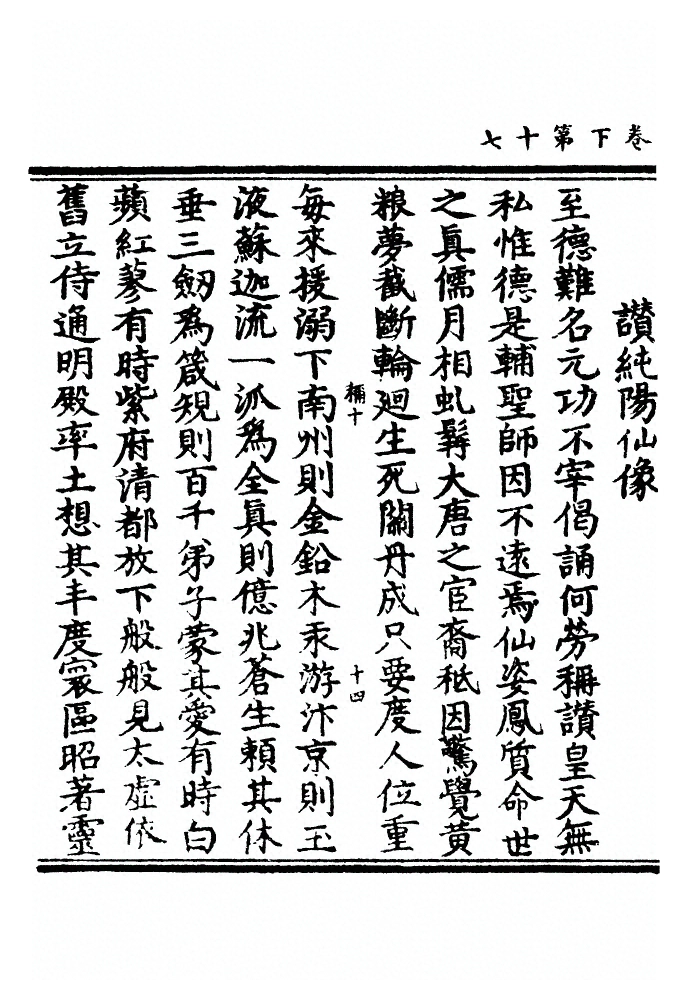 卷下第十七
讚純陽仙像
至德難名元功不宰偈誦何勞稱讚皇天無
私惟德是輔聖師因不遠焉仙姿鳳質命世
之眞儒月相虬髯大唐之宦裔秖因驚覺黃
粮夢截斷輪廻生死關丹成只要度人位重
稱十
十四
每來援溺下南州則金鉛木汞游汴京則玉
液蘇迦流一派爲全眞則億兆蒼生賴其休
垂三劔爲箴規則百千弟子蒙其愛有時白
蘋紅蓼有時紫府清都放下般般見太虛依
舊立侍通明殿率土想其丰度寰區昭著靈